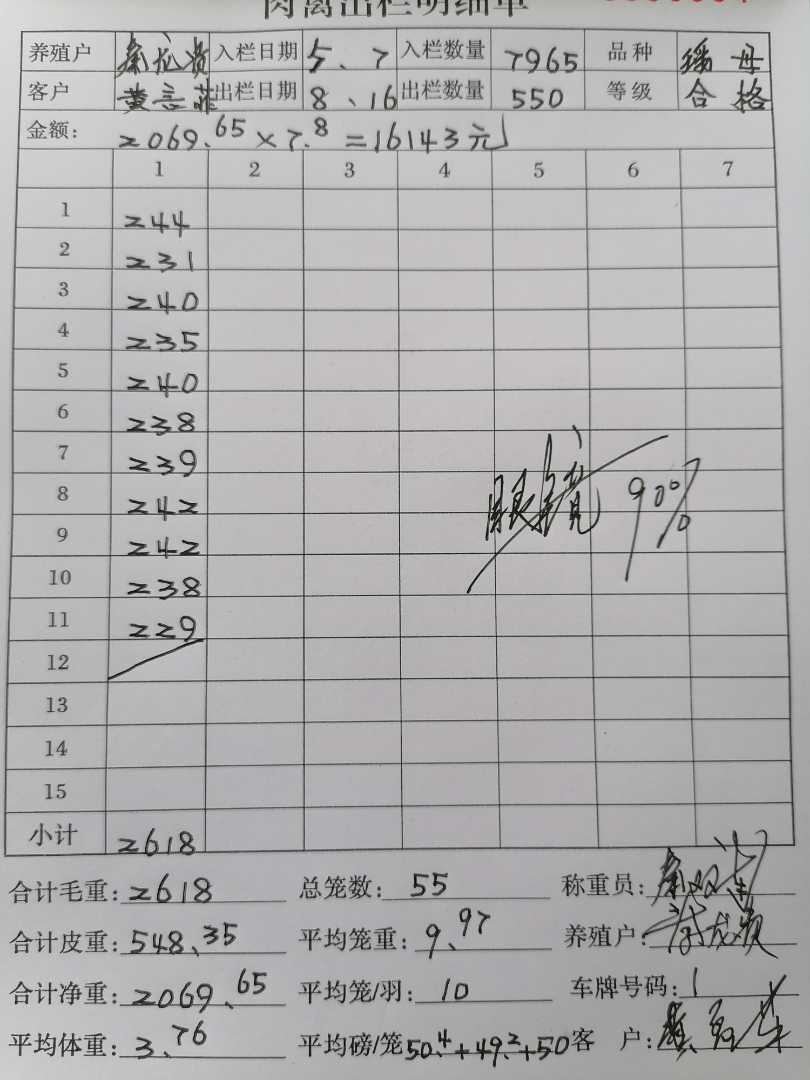 肉禽出栏明细单
养殖户 秦龙贵 入栏日期 5、7 入栏数量 7965 品种 瑶母
客户 黄言菲 出栏日期 8、16 出栏数量 550 等级 合格
金额: 2069.65×7.8=16143元
1 2 3 4 5 6 7
1 244
2 231
3 240
4 235
5 240
6 238
7 239
8 242
9 242
10 238
11 229
12
13
14
15
90%
小计 2618
合计毛重: 2618 总笼数: 55 称重员:
合计皮重: 548.35 平均笼重: 9.97 养殖户:
合计净重: 2069.65 平均笼/羽: 10 车牌号码: 1
平均体重: 3.76 平均磅/笼 50.4+49.2+50 客 户: